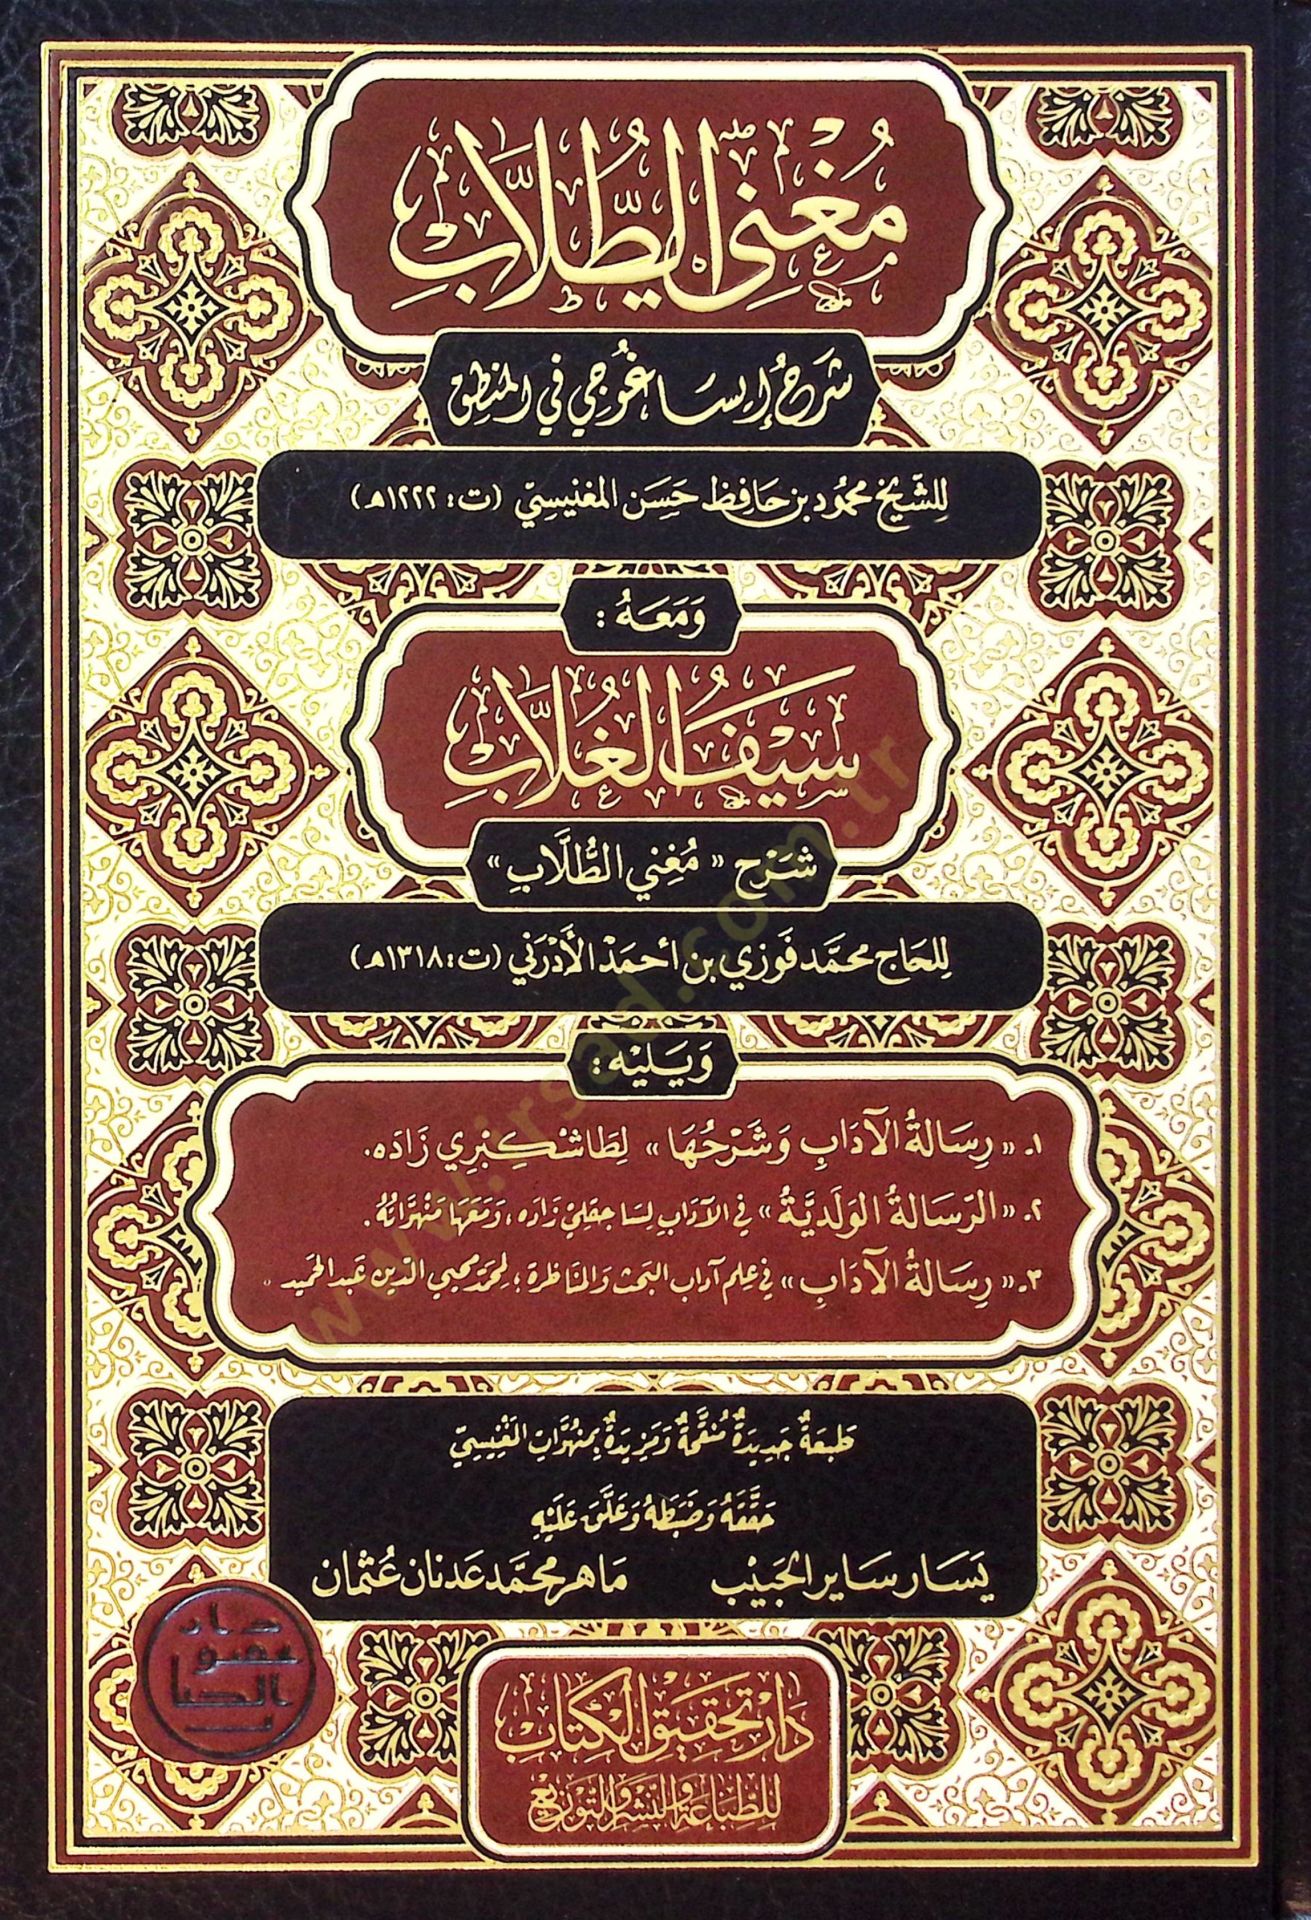 مُغْنِي الطُّلَّابِ
شَرْحُ إيسَاغُوجِي فِي المَنْطِقِ
لِلشَّيْخِ محمُود بن حَافِظ حَسَن المغنيسِيّ (ت: ١٢٢٢هـ)
وَمَعَهُ :
سَيْفُ الغُلَّابِ
شَرْح « مُغْنِي الطُّلَّابِ »
لِلحَاج محمَّد فَوْزِي بن أَحمَد الأَدْرَنِي (ت: ١٣١٨هـ)
وَيَليْه :
١. « رِسَالةُ الآدَابِ وَشَرْحُهَا » لِطَاشْكِبْرِي زَادَه.
٢. « الرِّسَالةُ الوَلَدِيَّةُ » فِي الآدَابِ لِسَاجَقلِي زَادَه، وَمَعَهَا مَنْهُوَّاتُهُ.
٣. « رِسَالةُ الآدَابِ » فِي عِلمِ آدَابِ البَحْثِ وَالمُنَاظَرَة؛ لمحمَّد محيي الدّين عَبد الحَميد
طَبعَةٌ جَدِيدَةٌ مُنَقَّحَةٌ وَمَزِيدَةٌ بِمنْهُوَّاتِ المَغْنِيسِيّ
حَقَّقَهُ وَضَبَطَهُ وَعَلَّقَ عَلَيْهِ
يَسَار سَاير الحَبِيْب    مَاهر محمَّد عَدنَان عُثمَان
دَار تَحقِيق الكِتَاب
لِلطِّبَاعَةِ وَالنَّشْرِ وَالتَّوْزِيعِ
www.irsad.com.tr